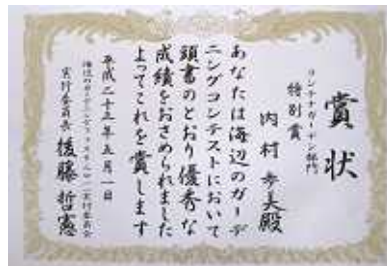 賞状
コンテナガーデン部門
特別賞
内村歩夫殿
あなたは海辺のガーデ
ニングコンテストにおいて
頭書のとおり優秀な
成績をおさめられました
よってこれを賞します
平成二十五年五月一日
海辺のガーデニングフェスティバル実行委員会
実行委員長 後藤哲憲